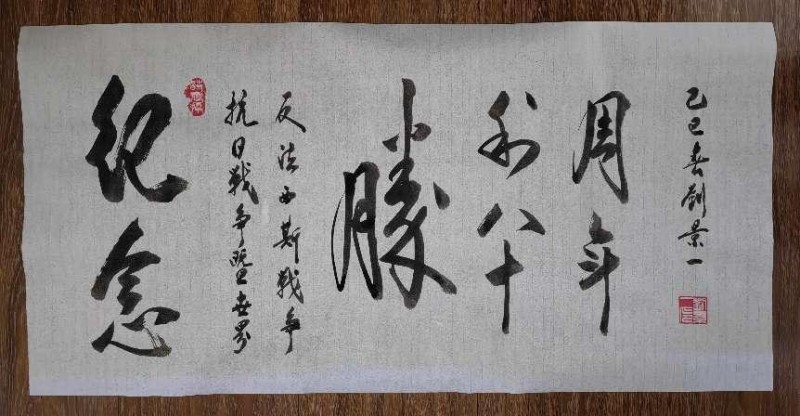 纪念
抗日战争暨世界
反法西斯战争
胜
利八十
周年
乙巳春刘景一